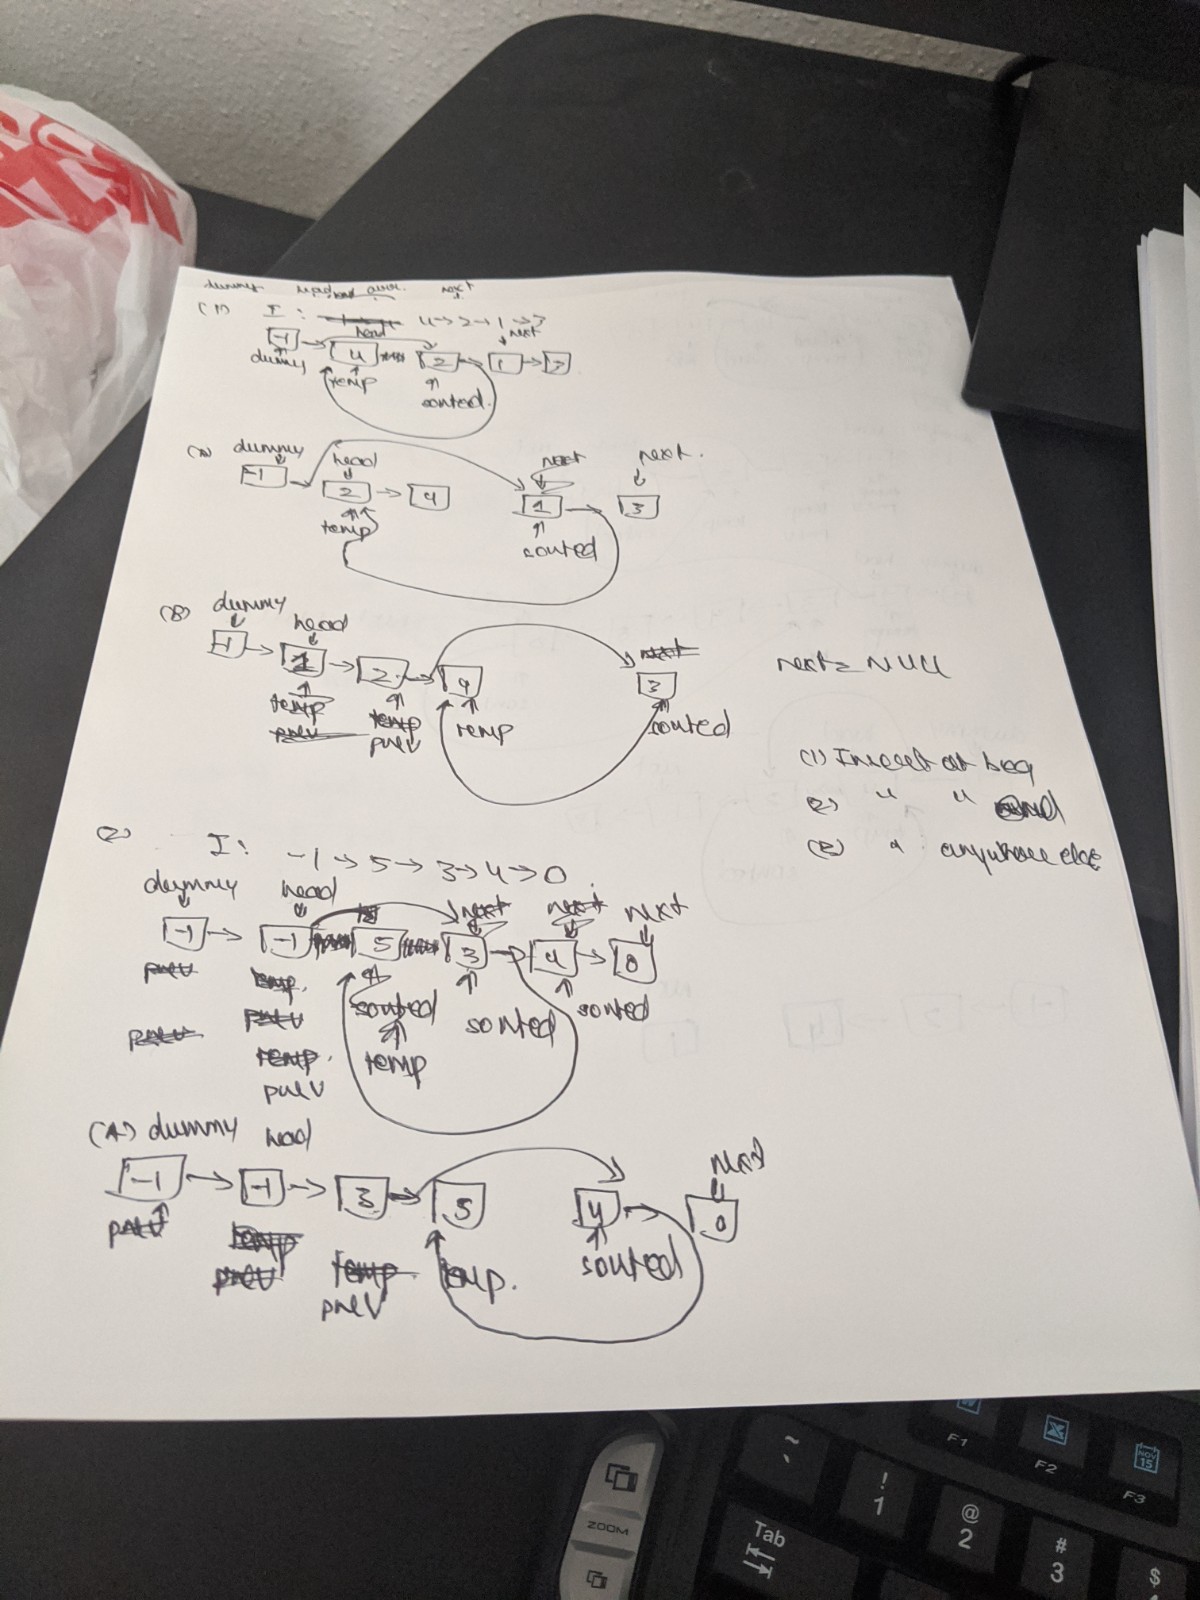 dummy head curr. next
(1) I: 4→2→1→3
head next
-1 → 4 2 → 1 → 3
dummy temp sorted.
(A) dummy head next next.
-1 → 2 → 4 1 → 3
temp sorted
(B) dummy head
-1 → 1 → 2 → 4 next 3
temp temp temp sorted
prev prev
next = NULL
(1) Insert at beg
(2) " " end
(3) " anywhere else
(2) I: -1 → 5 → 3 → 4 → 0
dummy head next next next
-1 → -1 5 3 → 4 → 0
prev temp. sorted sorted sorted
prev prev temp
temp.
prev
(A) dummy head next
-1 → -1 → 3 → 5 4 → 0
prev temp temp temp. sorted
prev prev
~
`
!
1
@
2
#
3
$
Tab
F1
F2
F3
NOV
15
ZOOM